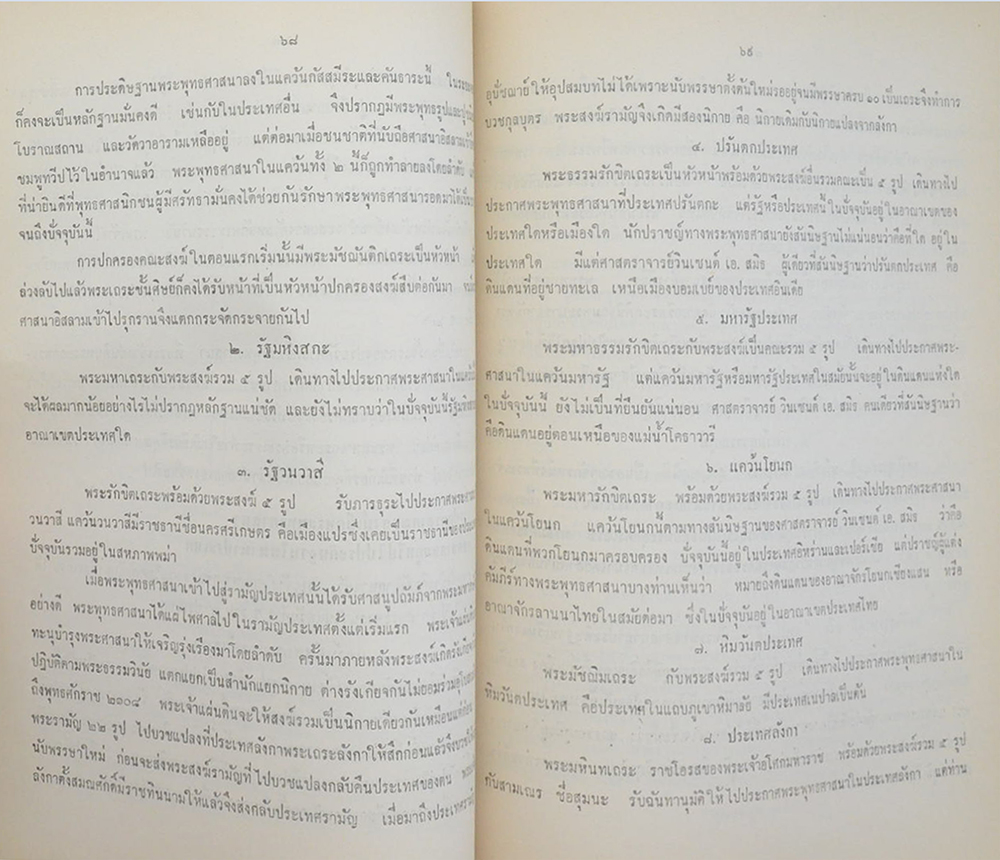 ๖๘
การประดิษฐานพระพุทธศาสนาลงในแคว้นกัสสมีระและคันธาระนี้ ในระยะ
ก็คงจะเป็นหลักฐานมั่นคงดี เช่นกับในประเทศอื่น จึงปรากฏมีพระพุทธรูปและปูชนีย
โบราณสถาน และวัดวาอารามเหลืออยู่ แต่ต่อมาเมื่อชนชาติที่นับถือศาสนาอิสลาม
ชมพูทวีปไว้ในอำนาจแล้ว พระพุทธศาสนาในแคว้นทั้ง ๒ นี้ก็ถูกทำลายลงโดยลำดับ
ที่น่ายินดีที่พุทธศาสนิกชนผู้มีศรัทธามั่นคงได้ช่วยกันรักษาพระพุทธศาสนารอดมาได้
จนถึงปัจจุบันนี้
การปกครองคณะสงฆ์ในตอนแรกเริ่มนั้นมีพระมัชฌันติกเถระเป็นหัวหน้า
ล่วงลับไปแล้วพระเถระชั้นศิษย์ก็คงได้รับหน้าที่เป็นหัวหน้าปกครองสงฆ์สืบต่อกันมา
ศาสนาอิสลามเข้าไปรุกรานจึงแตกกระจัดกระจายกันไป
๒. รัฐมหิงสกะ
พระมหาเถระกับพระสงฆ์รวม ๕ รูป เดินทางไปประกาศพระศาสนาในแคว้น
จะได้ผลมากน้อยอย่างไรไม่ปรากฏหลักฐานแน่ชัด และยังไม่ทราบว่าในปัจจุบันนี้รัฐมหิงสกะ
อาณาเขตประเทศใด
๓. รัฐวนวาสี
พระรักขิตเถระพร้อมด้วยพระสงฆ์ ๕ รูป รับภารธุระไปประกาศพระศาสนา
วนวาสี แคว้นวนวาสีมีราชธานีชื่อนครศรีเกษตร คือเมืองแปรซึ่งเคยเป็นราชธานีของประเทศ
ปัจจุบันรวมอยู่ในสหภาพพม่า
เมื่อพระพุทธศาสนาเข้าไปสู่รามัญประเทศนั้นได้รับศาสนูปถัมภ์จากพระมหา
อย่างดี พระพุทธศาสนาได้แผ่ไพศาลไปในรามัญประเทศตั้งแต่เริ่มแรก พระเจ้าแผ่นดิน
ทะนุบำรุงพระศาสนาให้เจริญรุ่งเรืองมาโดยลำดับ ครั้นมาภายหลังพระสงฆ์เกิดรังเกียจกัน
ปฏิบัติตามพระธรรมวินัย แตกแยกเป็นสำนักแยกนิกาย ต่างรังเกียจกันไม่ยอมร่วมอุโบสถ
ถึงพุทธศักราช ๒๐๑๘ พระเจ้าแผ่นดินจะให้สงฆ์รวมเป็นนิกายเดียวกันเหมือนแต่ก่อน
พระรามัญ ๒๒ รูป ไปบวชแปลงที่ประเทศลังกาพระเถระลังกาให้สึกก่อนแล้วจึงบวชให้
นับพรรษาใหม่ ก่อนจะส่งพระสงฆ์รามัญที่ไปบวชแปลงกลับคืนประเทศของตน
ลังกาตั้งสมณศักดิ์มีราชทินนามให้แล้วจึงส่งกลับประเทศรามัญ เมื่อมาถึงประเทศรามัญ
๖๙
อุปัชฌาย์ให้อุปสมบทไม่ได้เพราะนับพรรษาตั้งต้นใหม่รออยู่จนมีพรรษาครบ ๑๐ เป็นเถระจึงทำการ
บวชกุลบุตร พระสงฆ์รามัญจึงเกิดมีสองนิกาย คือ นิกายเดิมกับนิกายแปลงจากลังกา
๔. ปรันตกประเทศ
พระธรรมรักขิตเถระเป็นหัวหน้าพร้อมด้วยพระสงฆ์อื่นรวมคณะเป็น ๕ รูป เดินทางไป
ประกาศพระพุทธศาสนาที่ประเทศปรันตกะ แต่รัฐหรือประเทศนี้ในปัจจุบันอยู่ในอาณาเขตของ
ประเทศใดหรือเมืองใด นักปราชญ์ทางพระพุทธศาสนายังสันนิษฐานไม่แน่นอนว่าคือที่ใด อยู่ใน
ประเทศใด มีแต่ศาสตราจารย์วินเซนต์ เอ. สมิธ ผู้เดียวที่สันนิษฐานว่าปรันตกประเทศ คือ
ดินแดนที่อยู่ชายทะเล เหนือเมืองบอมเบย์ของประเทศอินเดีย
๕. มหารัฐประเทศ
พระมหาธรรมรักขิตเถระกับพระสงฆ์เป็นคณะรวม ๕ รูป เดินทางไปประกาศพระ-
ศาสนาในแคว้นมหารัฐ แต่แคว้นมหารัฐหรือมหารัฐประเทศในสมัยนั้นจะอยู่ในดินแดนแห่งใด
ในปัจจุบันนี้ ยังไม่เป็นที่ยืนยันแน่นอน ศาสตราจารย์ วินเซนต์ เอ. สมิธ คนเดียวที่สันนิษฐานว่า
คือดินแดนอยู่ตอนเหนือของแม่น้ำโคธาวารี
๖. แคว้นโยนก
พระมหารักขิตเถระ พร้อมด้วยพระสงฆ์รวม ๕ รูป เดินทางไปประกาศพระศาสนา
ในแคว้นโยนก แคว้นโยนกนี้ตามทางสันนิษฐานของศาสตราจารย์ วินเซนต์ เอ. สมิธ ว่าคือ
ดินแดนที่พวกโยนกมาครอบครอง ปัจจุบันนี้อยู่ในประเทศอิหร่านและเปอร์เซีย แต่ปราชญ์ผู้แต่ง
คัมภีร์ทางพระพุทธศาสนาบางท่านเห็นว่า หมายถึงดินแดนของอาณาจักรโยนกเชียงแสน หรือ
อาณาจักรลานนาไทยในสมัยต่อมา ซึ่งในปัจจุบันอยู่ในอาณาเขตประเทศไทย
๗. หิมวันตประเทศ
พระมัชฌิมเถระ กับพระสงฆ์รวม ๕ รูป เดินทางไปประกาศพระพุทธศาสนาใน
หิมวันตประเทศ คือประเทศในแถบภูเขาหิมาลัย มีประเทศเนปาลเป็นต้น
๘. ประเทศลังกา
พระมหินทเถระ ราชโอรสของพระเจ้าอโศกมหาราช พร้อมด้วยพระสงฆ์รวม ๕ รูป
กับสามเณร ชื่อสุมนะ รับฉันทานุมัติให้ไปประกาศพระพุทธศาสนาในประเทศลังกา แต่ท่าน